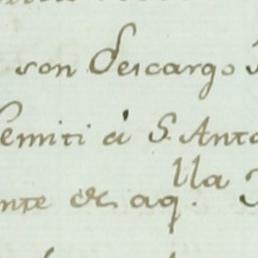 son descargo
emiti á S. Anto
nte de aq.lla